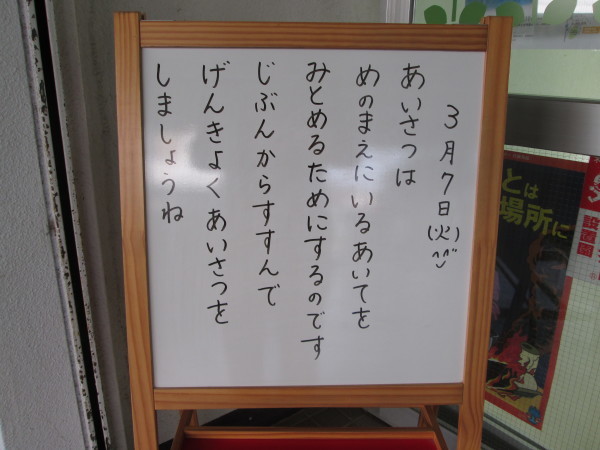 3月7日(火)
あいさつは
めのまえにいるあいてを
みとめるためにするのです
じぶんからすすんで
げんきよくあいさつを
しましょうね
とは
場所に
設置園